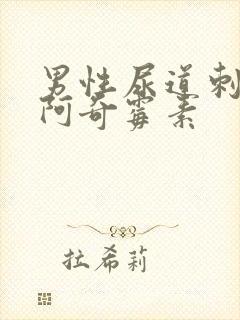 男性尿道刺
阿奇霉素
拉希莉